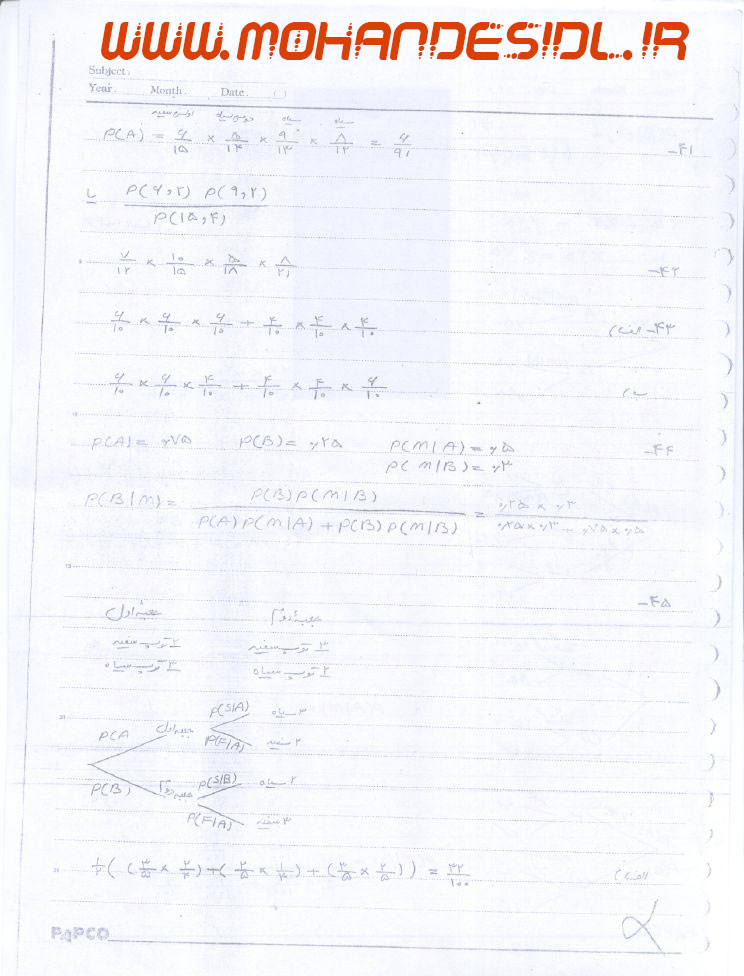 WWW.MOHANDESIDL.IR
Subject:
Year. Month. Date. ( )
اولی سفید دومی سفید سیاه سیاه
۴۱- P(A) = ۶/۱۵ × ۵/۱۴ × ۹/۱۳ × ۸/۱۲ = ۶/۹۱
یا P(۶,۲) P(۹,۲) / P(۱۵,۴)
۴۲- ۷/۱۲ × ۱۰/۱۵ × ۵/۱۸ × ۸/۲۱
۴۳- الف) ۶/۱۰ × ۶/۱۰ × ۶/۱۰ + ۴/۱۰ × ۴/۱۰ × ۴/۱۰
ب) ۶/۱۰ × ۶/۱۰ × ۴/۱۰ + ۴/۱۰ × ۴/۱۰ × ۶/۱۰
۴۴- P(A) = ۰٫۷۵ P(B) = ۰٫۲۵ P(M|A) = ۰٫۵
P(M|B) = ۰٫۳
P(B|M) = P(B)P(M|B) / P(A)P(M|A) + P(B)P(M|B) = ۰٫۲۵ × ۰٫۳ / ۰٫۲۵ × ۰٫۳ + ۰٫۷۵ × ۰٫۵
۴۵-
جعبه اول جعبه دوم
۲ توپ سفید ۳ توپ سفید
۳ توپ سیاه ۲ توپ سیاه
P(S|A) ۳ سیاه
P(A جعبه اول
P(F|A) ۲ سفید
P(B) جعبه دوم P(S|B) ۲ سیاه
P(F|A) ۳ سفید
الف) ۱/۲ ( (۳/۵ × ۲/۴) + (۲/۵ × ۱/۴) + (۳/۵ × ۲/۵) ) = ۳۲/۱۰۰
PAPCO